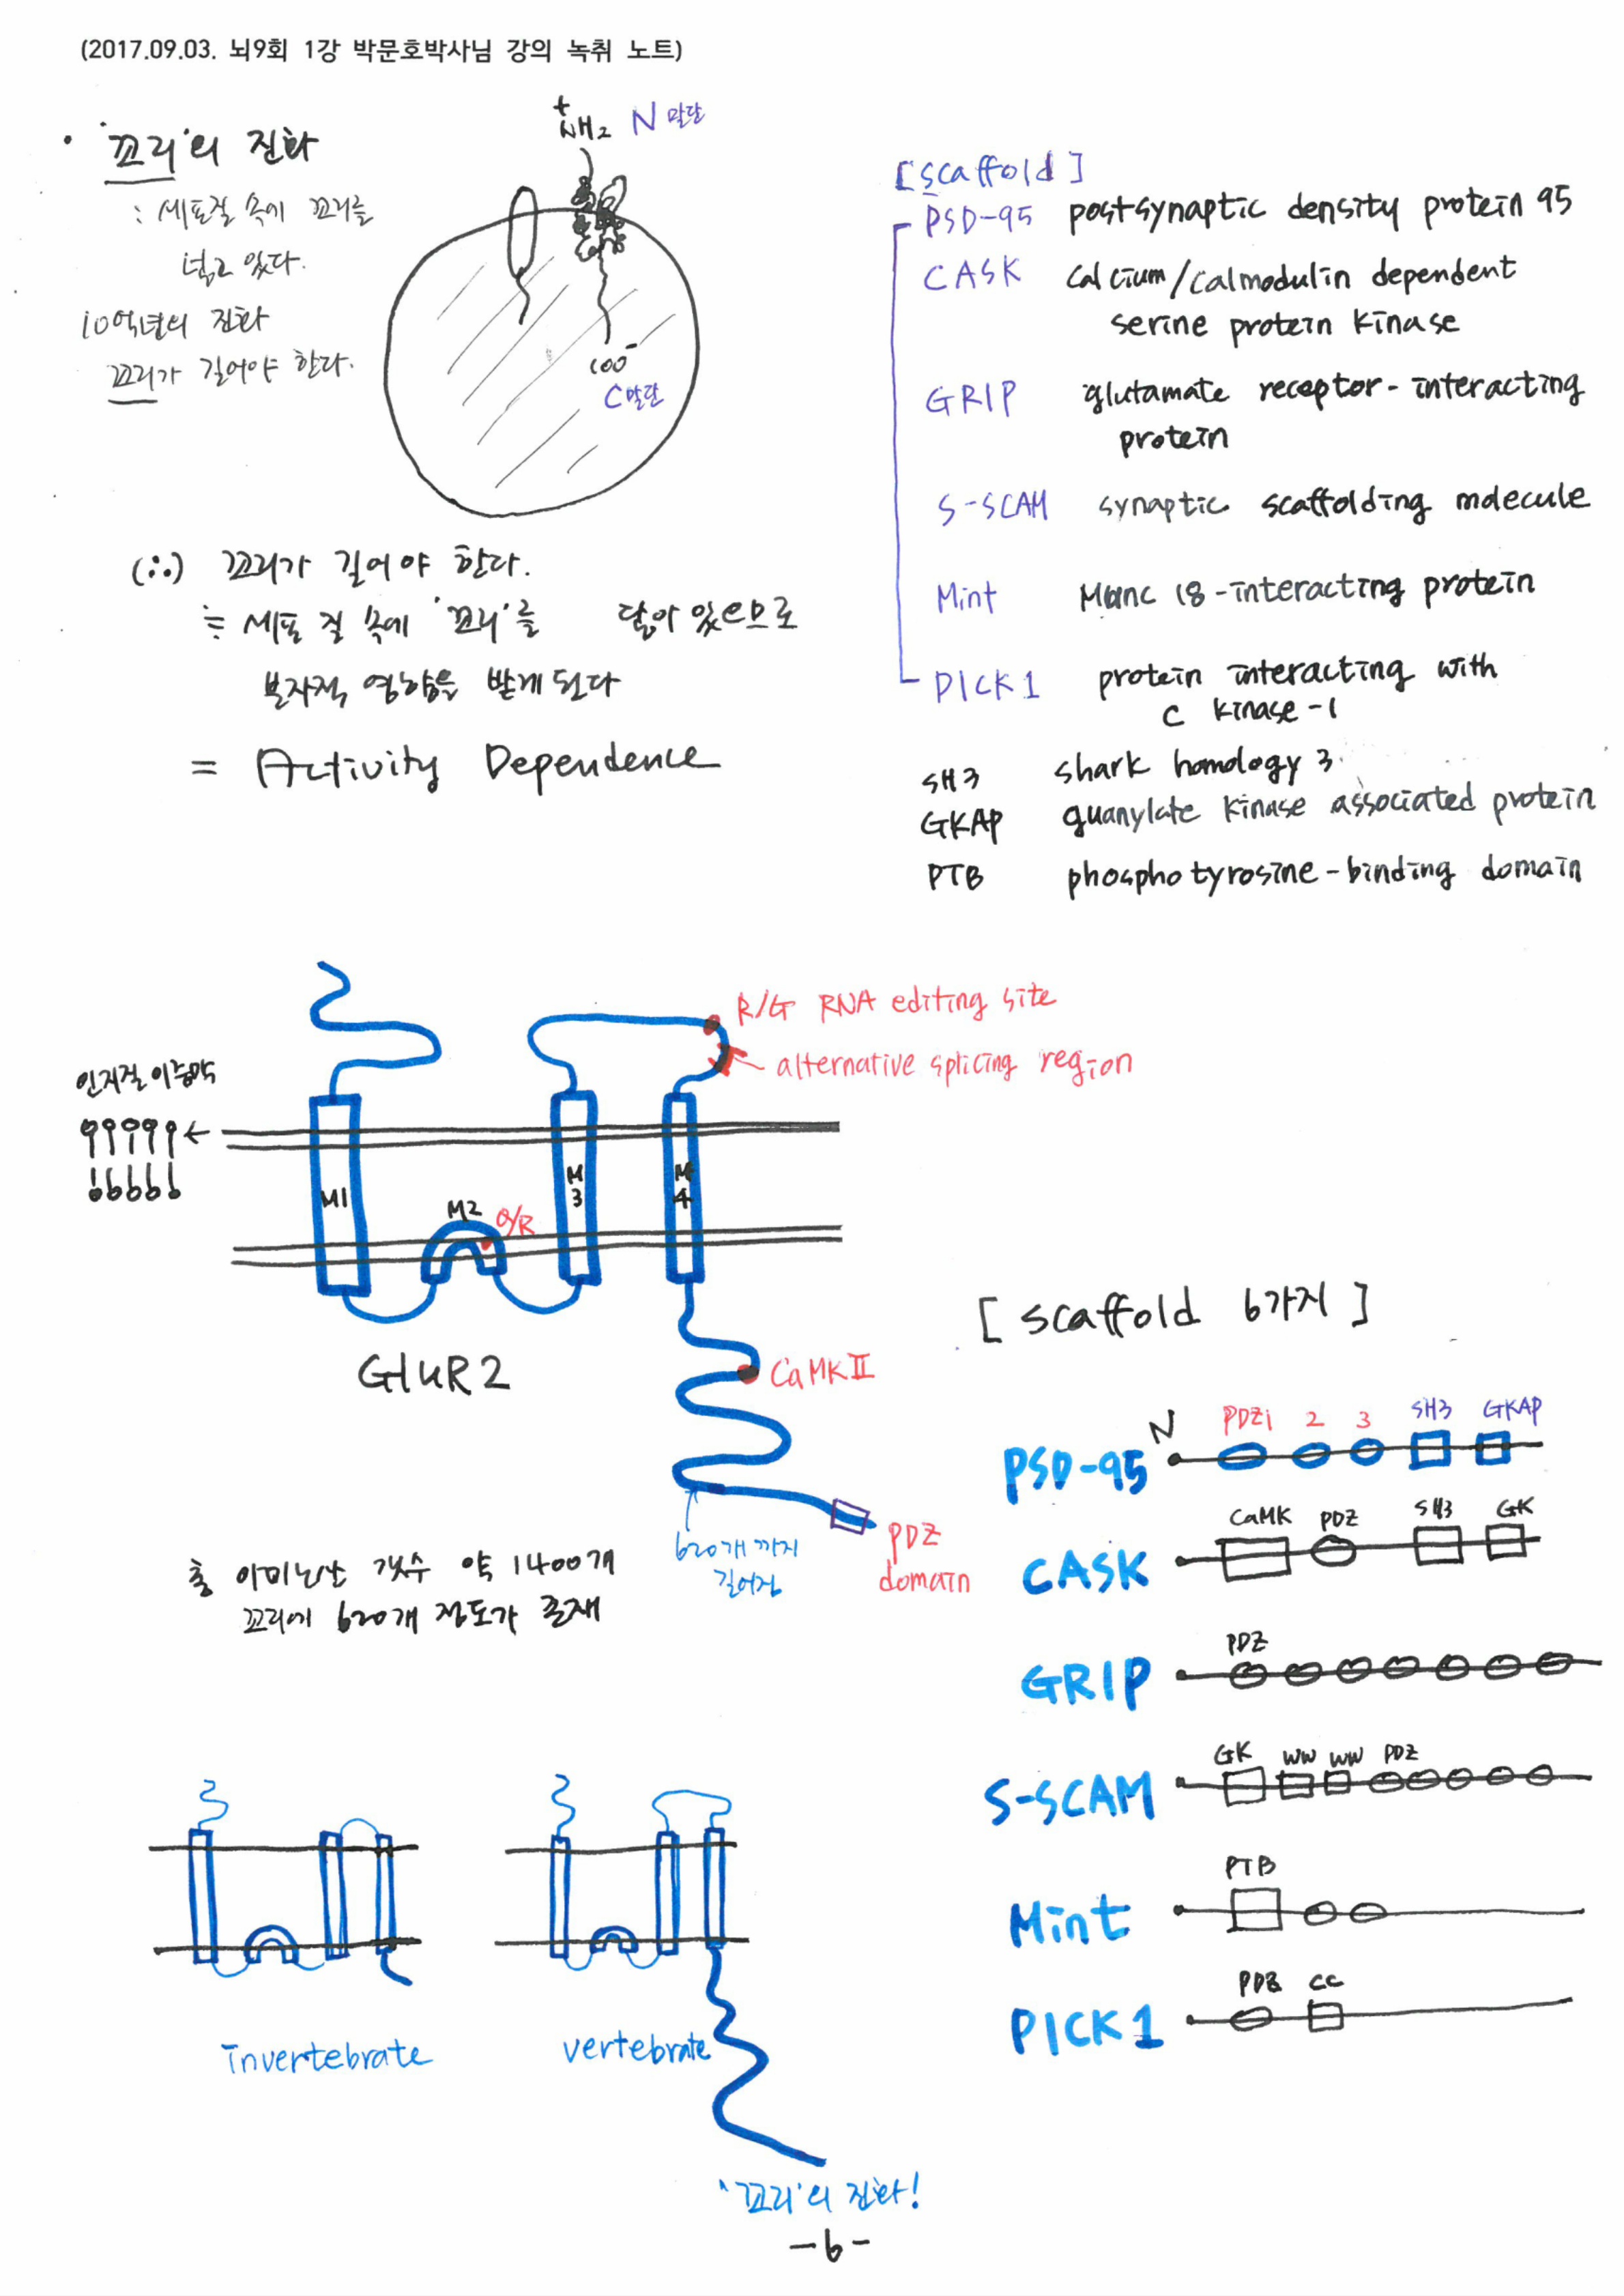 (2017.09.03. 뇌9회 1강 박문호박사님 강의 녹취 노트)
• '꼬리'의 진화
: 세포질 속에 꼬리를
넣고 있다.
10억년의 진화
꼬리가 길어야 한다.
+
NH2 N 말단
COO-
C말단
(∴) 꼬리가 길어야 한다.
≒ 세포질 속에 '꼬리'를 달아 있으므로
분자적 영향을 받게 된다
= Activity Dependence
[scaffold]
PSD-95 postsynaptic density protein 95
CASK calcium/calmodulin dependent
serine protein kinase
GRIP glutamate receptor-interacting
protein
S-SCAM synaptic scaffolding molecule
Mint Munc 18-interacting protein
PICK1 protein interacting with
C kinase-1
SH3 shark homology 3
GKAP guanylate kinase associated protein
PTB phosphotyrosine-binding domain
R/G RNA editing site
alternative splicing region
인지질이중막
M1
M2
Q/R
M3
M4
GluR2
CaMKII
620개 까지
길어짐
PDZ
domain
총 아미노산 갯수 약 1400개
꼬리에 620개 정도가 존재
[ scaffold 6가지 ]
PSD-95 N PDZ1 2 3 SH3 GKAP
CASK CaMK PDZ SH3 GK
GRIP PDZ
S-SCAM GK WW WW PDZ
Mint PTB
PICK1 PDZ CC
invertebrate
vertebrate
'꼬리'의 진화!
-6-